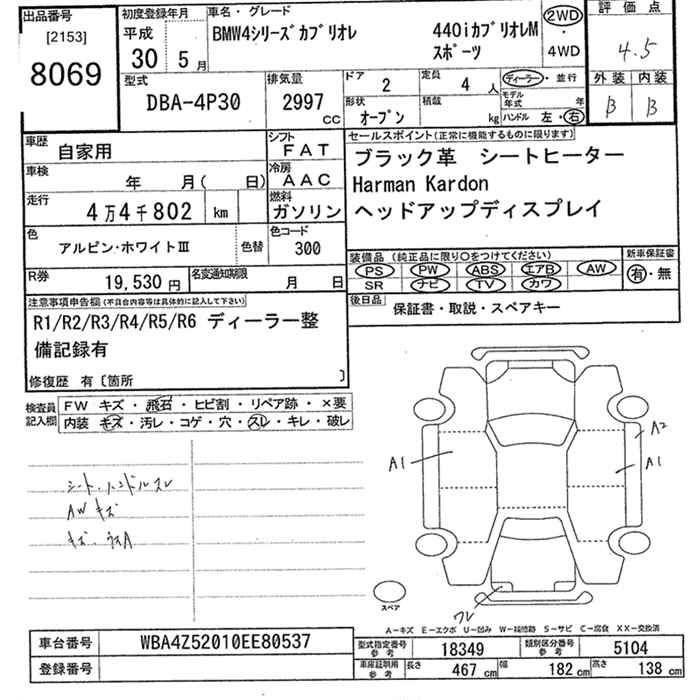 出品番号
[2153]
8069
初度登録年月
平成
30 5月
車名・グレード
BMW4シリーズカブリオレ
440iカブリオレM
スポーツ
2WD
・
4WD
評価点
4.5
外装 内装
B B
型式
DBA-4P30
排気量
2997
CC
ドア 2
定員 4人
形状 オープン
積載 kg
ディーラー・並行
モデル年式 年
ハンドル 左・右
車歴 自家用
シフト FAT
車検 年 月( 日)
冷房 AAC
走行 4万4千802 km
燃料 ガソリン
色 アルピン・ホワイトⅢ 色替
色コード 300
R券 19,530円
名変通知期限 月 日
セールスポイント(正常に機能するものに限ります)
ブラック革 シートヒーター
Harman Kardon
ヘッドアップディスプレイ
装備品(純正品に限り○をつけてください)
PS PW ABS エアB AW
SR ナビ TV カワ
新車保証書
有・無
後日品 保証書・取説・スペアキー
注意事項申告欄(不具合内容等は具体的に記入して下さい)
R1/R2/R3/R4/R5/R6 ディーラー整
備記録有
修復歴 有〔箇所 〕
検査員記入欄
FW キズ・飛石・ヒビ割・リペア跡・×要
内装 キズ・汚レ・コゲ・穴・スレ・キレ・破レ
シート、ハンドルスレ
AWキズ
A1
A2
A1
スペア
A-キズ E-エクボ U-凹み W-補修跡 S-サビ C-腐食 XX-交換済
車台番号 WBA4Z52010EE80537
登録番号
型式指定番号参考 18349
類別区分番号参考 5104
車庫証明用参考 長さ 467cm 幅 182cm 高さ 138cm